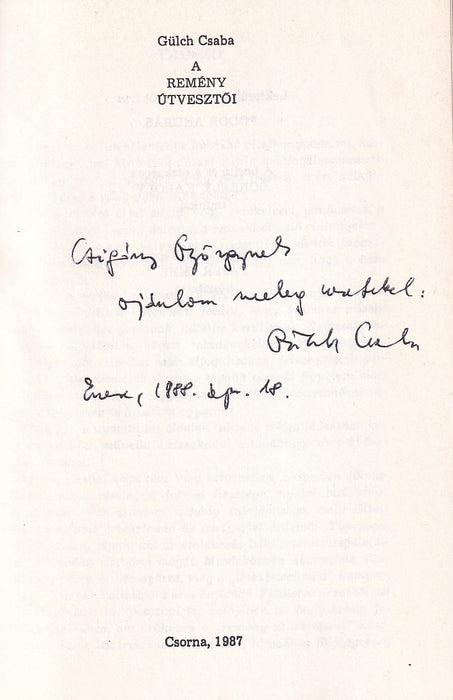 Gülch Csaba
A
REMÉNY
ÚTVESZTŐI
Czigány Györgynek
ajánlom meleg szeretettel:
Gülch Csaba
1988. 18.
Csorna, 1987